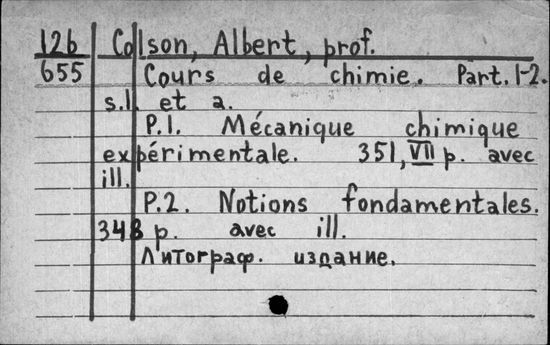 126 Colson, Albert, prof.
655 Cours de chimie. Part. 1-2.
s.l. et a.
P.1. Mécanique chimique
expérimentale. 351, VII p. avec
ill.
P.2. Notions fondamentales.
348 p. avec ill.
Литограф. издание.